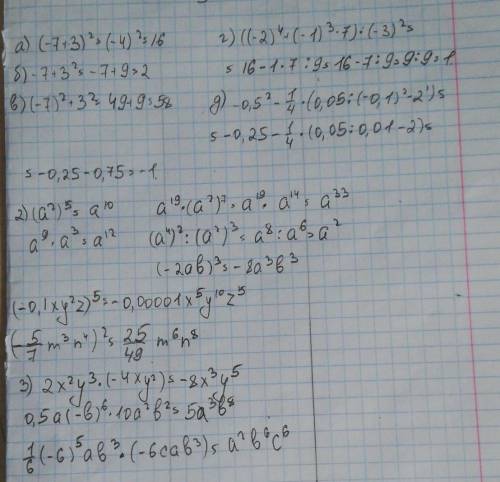 а) (-7+3)²=(-4)²=16
б) -7+3²=-7+9=2
в) (-7)²+3²=49+9=58
г) ((-2)⁴+(-1)³·7):(-3)²=
=16-1·7:9=16-7:9=9:9=1.
д) -0,5²-1/4·(0,05:(-0,1)²-2¹)=
=-0,25-1/4·(0,05:0,01-2)=
=-0,25-0,75=-1.
2) (a²)⁵=a¹⁰
a⁹·a³=a¹²
a¹⁹·(a²)⁷=a¹⁹·a¹⁴=a³³
(a⁴)²:(a²)³=a⁸:a⁶=a²
(-2ab)³=-8a³b³
(-0,1xy²z)⁵=-0,00001x⁵y¹⁰z⁵
(-5/7 m³n⁴)²=25/49 m⁶n⁸
3) 2x²y³·(-4xy²)=-8x³y⁵
0,5a(-b)⁶·10a²b²=5a³b⁸
1/6(-6)⁵ab³·(-6cab³)=a²b⁶c⁶